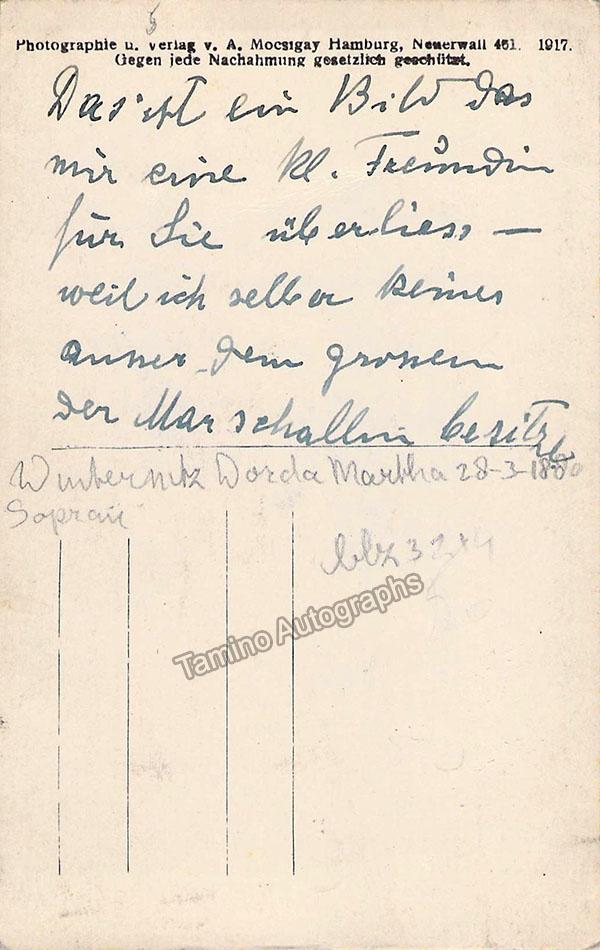 5
Photographie u. Verlag v. A. Mocsigay Hamburg, Neuerwall 461. 1917.
Gegen jede Nachahmung gesetzlich geschützt.
Das ist ein Bild das
mir eine kl. Freundin
für Sie überliess —
weil ich selber keines
ausser dem grossen
der Marschallin besitze
Winternitz Dorda Martha 28-3-1880
Sopran
Tamino Autographs